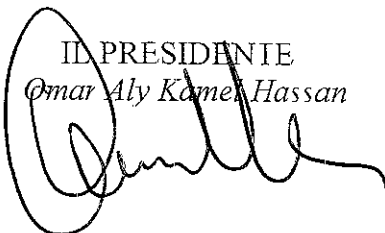 IL PRESIDENTE
Omar Aly Kamel Hassan